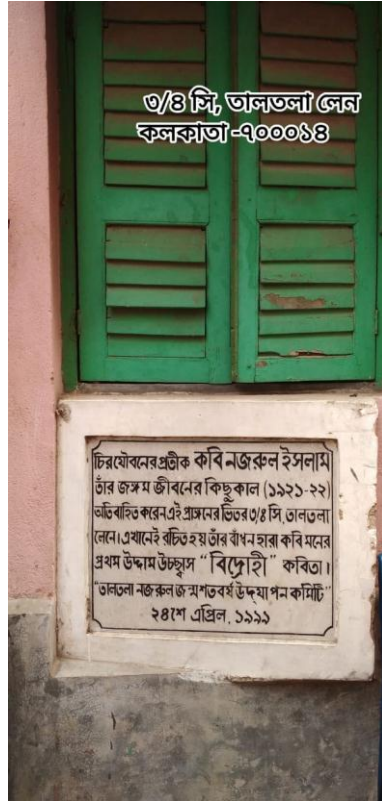 ৩/৪ সি, তালতলা লেন
কলকাতা -৭০০০১৪
চিরযৌবনের প্রতীক কবি নজরুল ইসলাম
তাঁর জঙ্গম জীবনের কিছুকাল (১৯২১-২২)
অতিবাহিত করেন এই প্রাঙ্গনের ভিতর ৩/৪ সি, তালতলা
লেনে। এখানেই রচিত হয় তাঁর বাঁধন হারা কবি মনের
প্রথম উদ্দাম উচ্ছ্বাস "বিদ্রোহী" কবিতা।
"তালতলা নজরুল জন্মশতবর্ষ উদ্‌যাপন কমিটি"
২৪শে এপ্রিল, ১৯৯৯